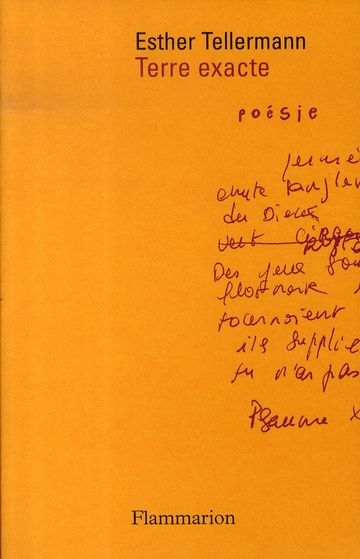 Esther Tellermann
Terre exacte
poésie
chute
des Dieux
vert
Des yeux
tournoient
ils supplie
tu n'as pas
Psaume
Flammarion